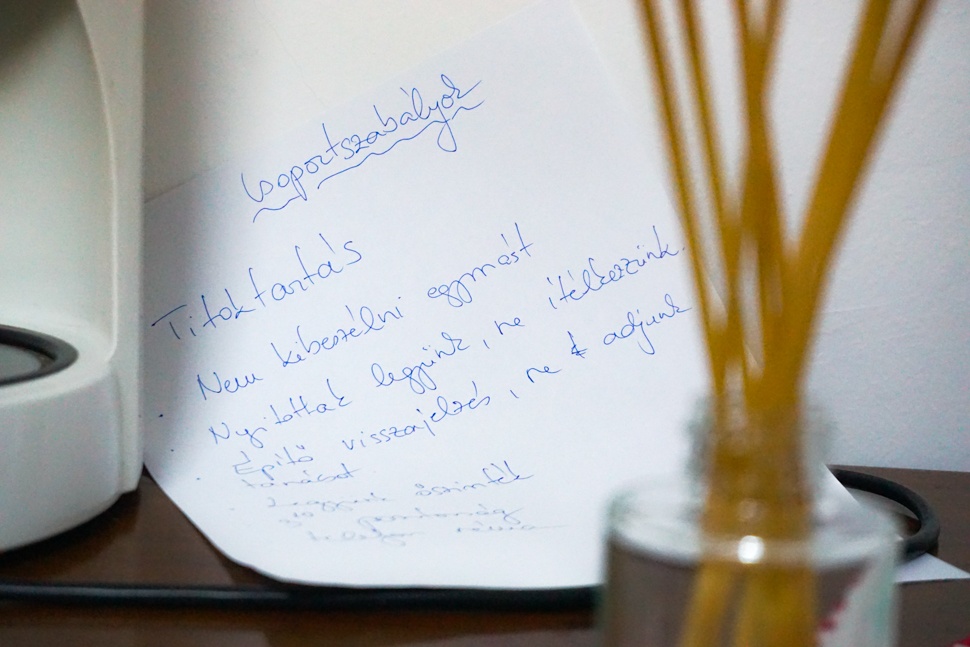 Csoportszabályok
Titoktartás
Nem kibeszélni egymást
Nyitottak legyünk, ne ítélkezzünk.
Építő visszajelzés, ne adjunk
tanácsot
Legyünk őszinték
pontosság
telefon néma